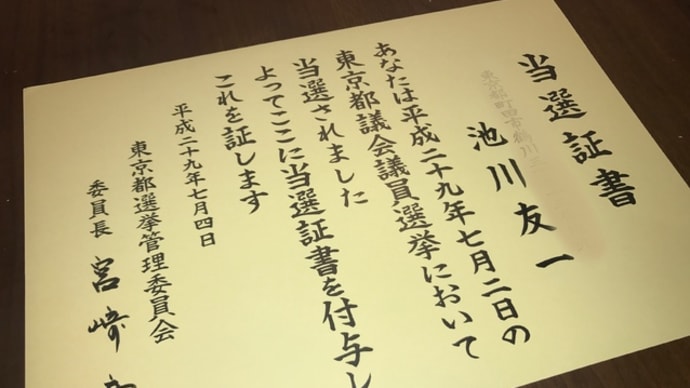 当選証書
東京都町田市鶴川
池川友一
あなたは平成二十九年七月二日の
東京都議会議員選挙において
当選されました
よってここに当選証書を付与し
これを証します
平成二十九年七月四日
東京都選挙管理委員会
委員長 宮崎